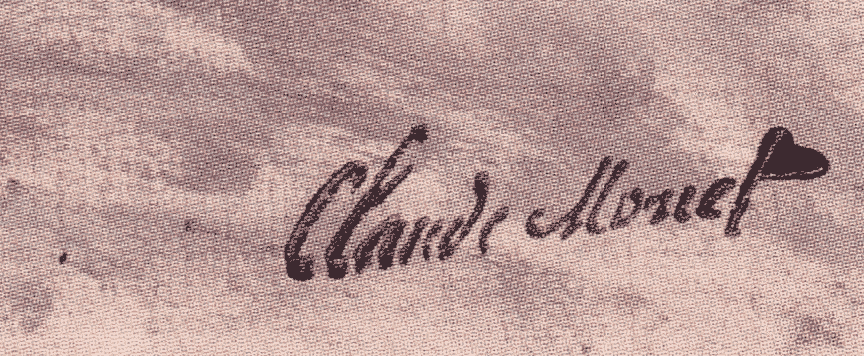 Claude Monet